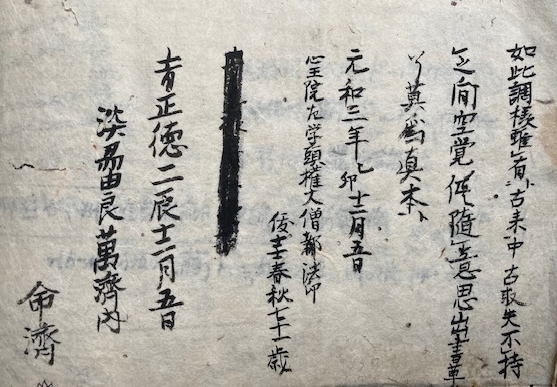 如此調樣雖有古来中古取失不持
之間空覚任随意思出書畢
莫為真本
元和三年乙卯十二月五日
院左学頭権大僧都法印
春秋七十一歳
正徳二辰十二月五日
由良萬濟内
命濟